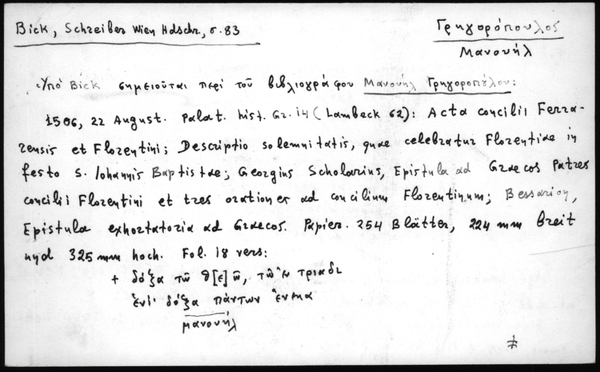 Bick, Schreiber Wien Hdschr, σ. 83
Γρηγορόπουλος
Μανουήλ
Ὑπὸ Bick σημειοῦται περὶ τοῦ βιβλιογράφου Μανουὴλ Γρηγοροπούλου:
1506, 22 August. Palat. hist. Gr. 14 (Lambeck 62): Acta concilii Ferra-
rensis et Florentini; Descriptio solemnitatis, quae celebratur Florentiae in
festo S. Iohannis Baptistae; Georgius Scholarius, Epistula ad Graecos Patres
concilii Florentini et tres orationes ad concilium Florentinum; Bessarion,
Epistula exhortatoria ad Graecos. Papier. 254 Blätter, 224 mm breit
und 325 mm hoch. Fol. 18 vers:
+ δόξα τῶ θ[ε]ῶ, τῶ ἐν τριάδι
ἑνί· δόξα πάντων ἕνεκα
μανουήλ